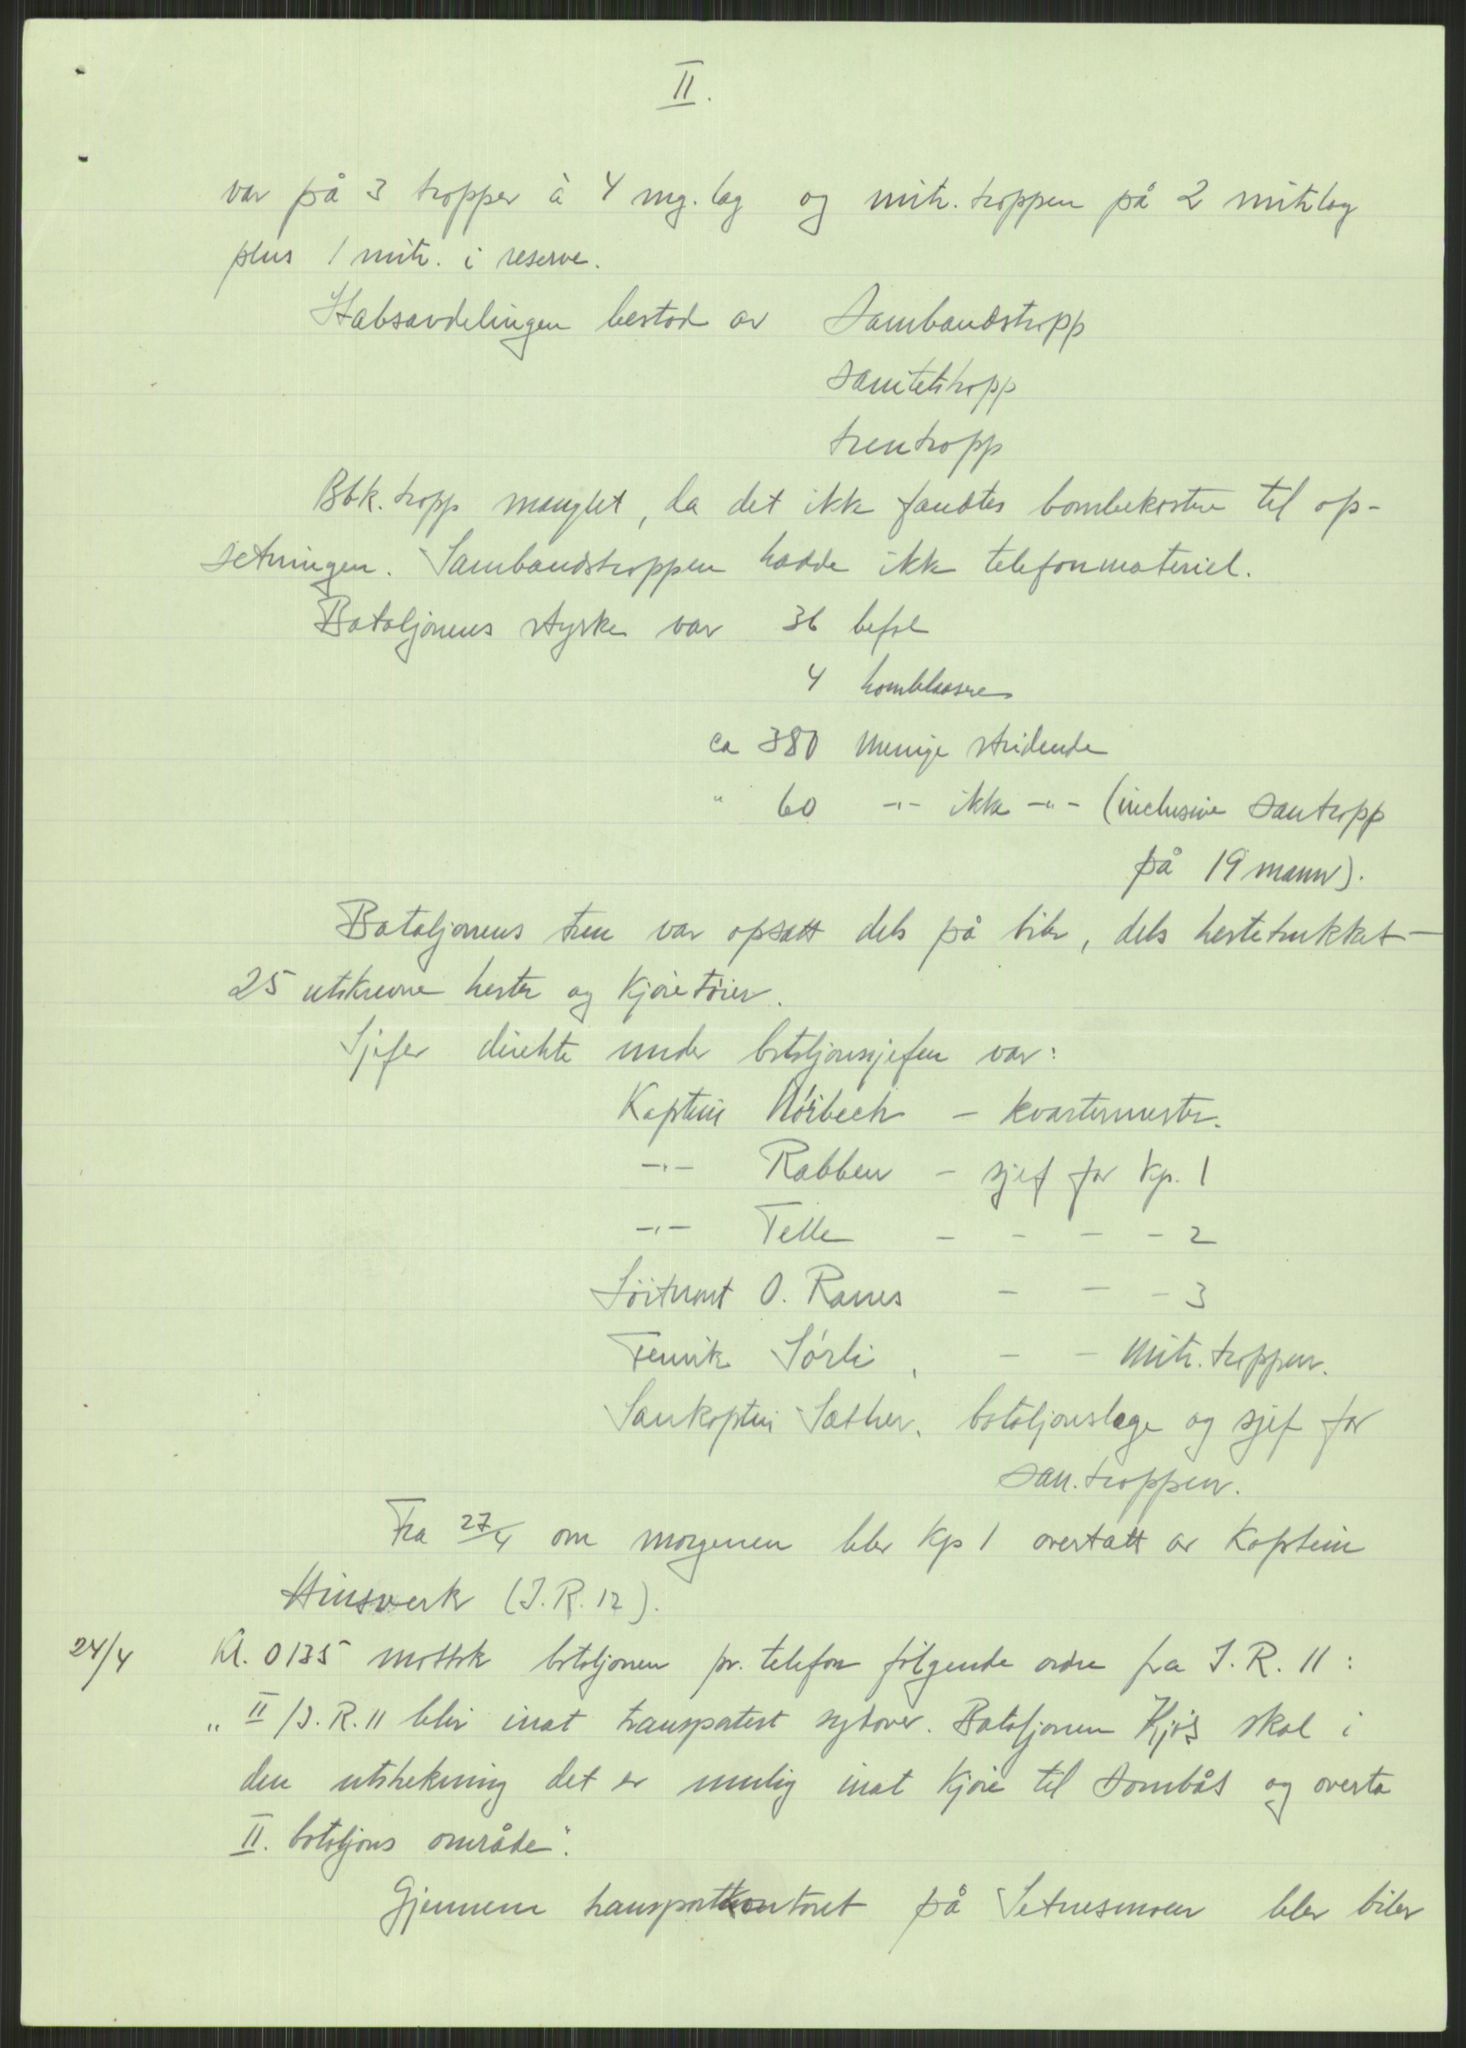 II.
var på 3 tropper à 4 mg.lag og mitr. troppen på 2 mitrlag
plus 1 mitr. i reserve.
Stabsavdelingen bestod av Sambandstropp
Sanitetstropp
trentropp
Bbk. tropp manglet, da det ikke fandtes bombekastere til op-
setningen. Sambandstroppen hadde ikke telefonmateriel.
Bataljonens styrke var 36 befal
4 hornblåsere
ca 380 menige stridende
" 60 -"- ikke -"- (inclusive santropp
på 19 mann).
Bataljonens tren var opsatt dels på biler, dels hestetrukket -
25 utskrevne hester og kjøretøier.
Sjefer direkte under bataljonssjefen var:
Kaptein Mörbech - kvartermester.
-"- Rabben - sjef for kp. 1
-"- Telle - - - - 2
Löitnant O. Ranes - - - 3
Fenrik Sörli, - - Mitr. troppen.
Sankaptein Sæther, bataljonslege og sjef for
san. troppen.
Fra 27/4 om morgenen blev kp 1 overtatt av Kaptein
Hinsverk (I.R. 12).
24/4 Kl. 0135 mottok bataljonen pr. telefon følgende ordre fra I.R. 11:
„II/I.R. 11 blir inat transportert sydover. Bataljonen Kjøs skal i
den utstrekning det er mulig inat kjøre til Dombås og overta
II. bataljons område".
Gjennem transportkontoret på Setnesmoen blev biler